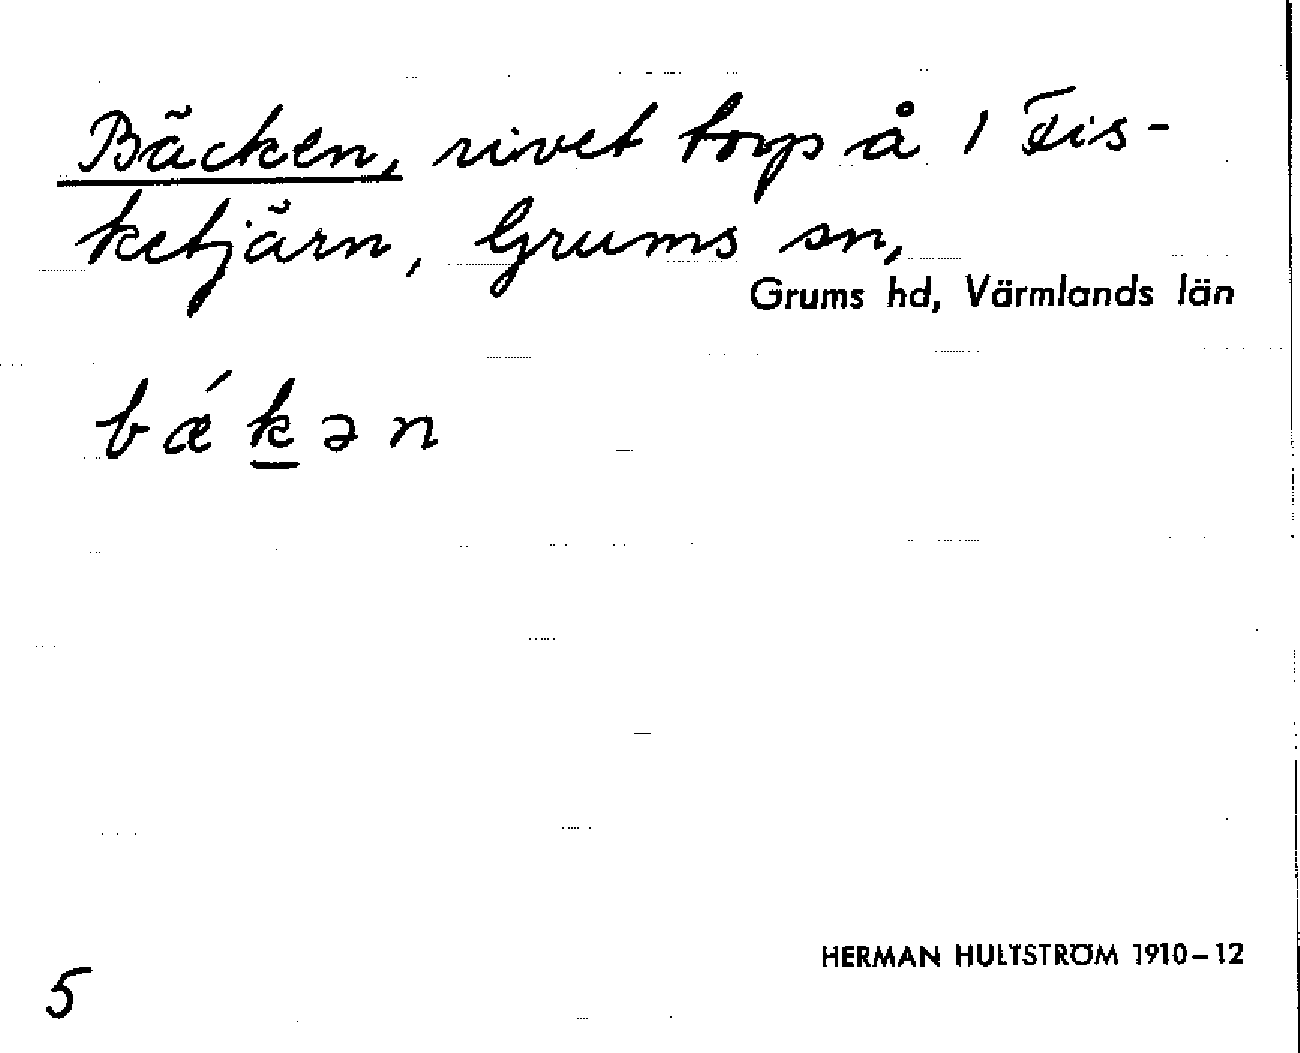 Bäcken, rivet torp å 1 Fis-
ketjärn, Grums sn,
Grums hd, Värmlands län
bǽkən
HERMAN HULTSTRÖM 1910–12
5